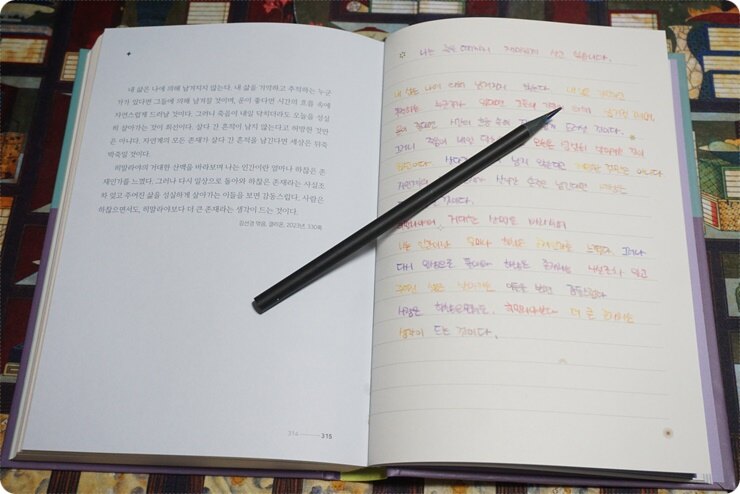 내 삶은 나에 의해 남겨지지 않는다. 내 삶을 기억하고 추적하는 누군
가가 있다면 그들에 의해 남겨질 것이며, 운이 좋다면 시간의 흐름 속에
자연스럽게 드러날 것이다. 그러니 죽음이 내일 닥치더라도 오늘을 성실
히 살아가는 것이 최선이다. 살다 간 흔적이 남지 않는다고 허망한 것만
은 아니다. 자연계의 모든 존재가 살다 간 흔적을 남긴다면 세상은 뒤죽
박죽일 것이다.
히말라야의 거대한 산맥을 바라보며 나는 인간이란 얼마나 하찮은 존
재인가를 느꼈다. 그러나 다시 일상으로 돌아와 하찮은 존재라는 사실조
차 잊고 주어진 삶을 성실하게 살아가는 이들을 보면 감동스럽다. 사람은
하찮으면서도, 히말라야보다 더 큰 존재라는 생각이 드는 것이다.
김선경 엮음, 2023년, 330쪽
314 315
나는 살고 있습니다.
내 삶은 나에 의해 남겨지지 않는다. 내 삶을 기억하고
누군가가 있다면 그들에 의해 남겨질 것이며,
운이 좋다면 시간의 흐름 속에 드러날 것이다.
그러니 죽음이 내일 오늘을 성실히 살아가는 것이
최선이다. 살다 간 남지 않는다고 허망한 것만은 아니다
자연계의 살다 간 흔적을 남긴다면 세상은
것이다.
히말라야의 거대한 산맥을 바라보며
나는 인간이란 얼마나 하찮은 존재인가를 느꼈다. 그러나
다시 일상으로 돌아와 하찮은 존재라는 사실조차 잊고
주어진 삶을 살아가는 이들을 보면 감동스럽다
사람은 하찮으면서도, 히말라야보다 더 큰 존재라는
생각이 드는 것이다.